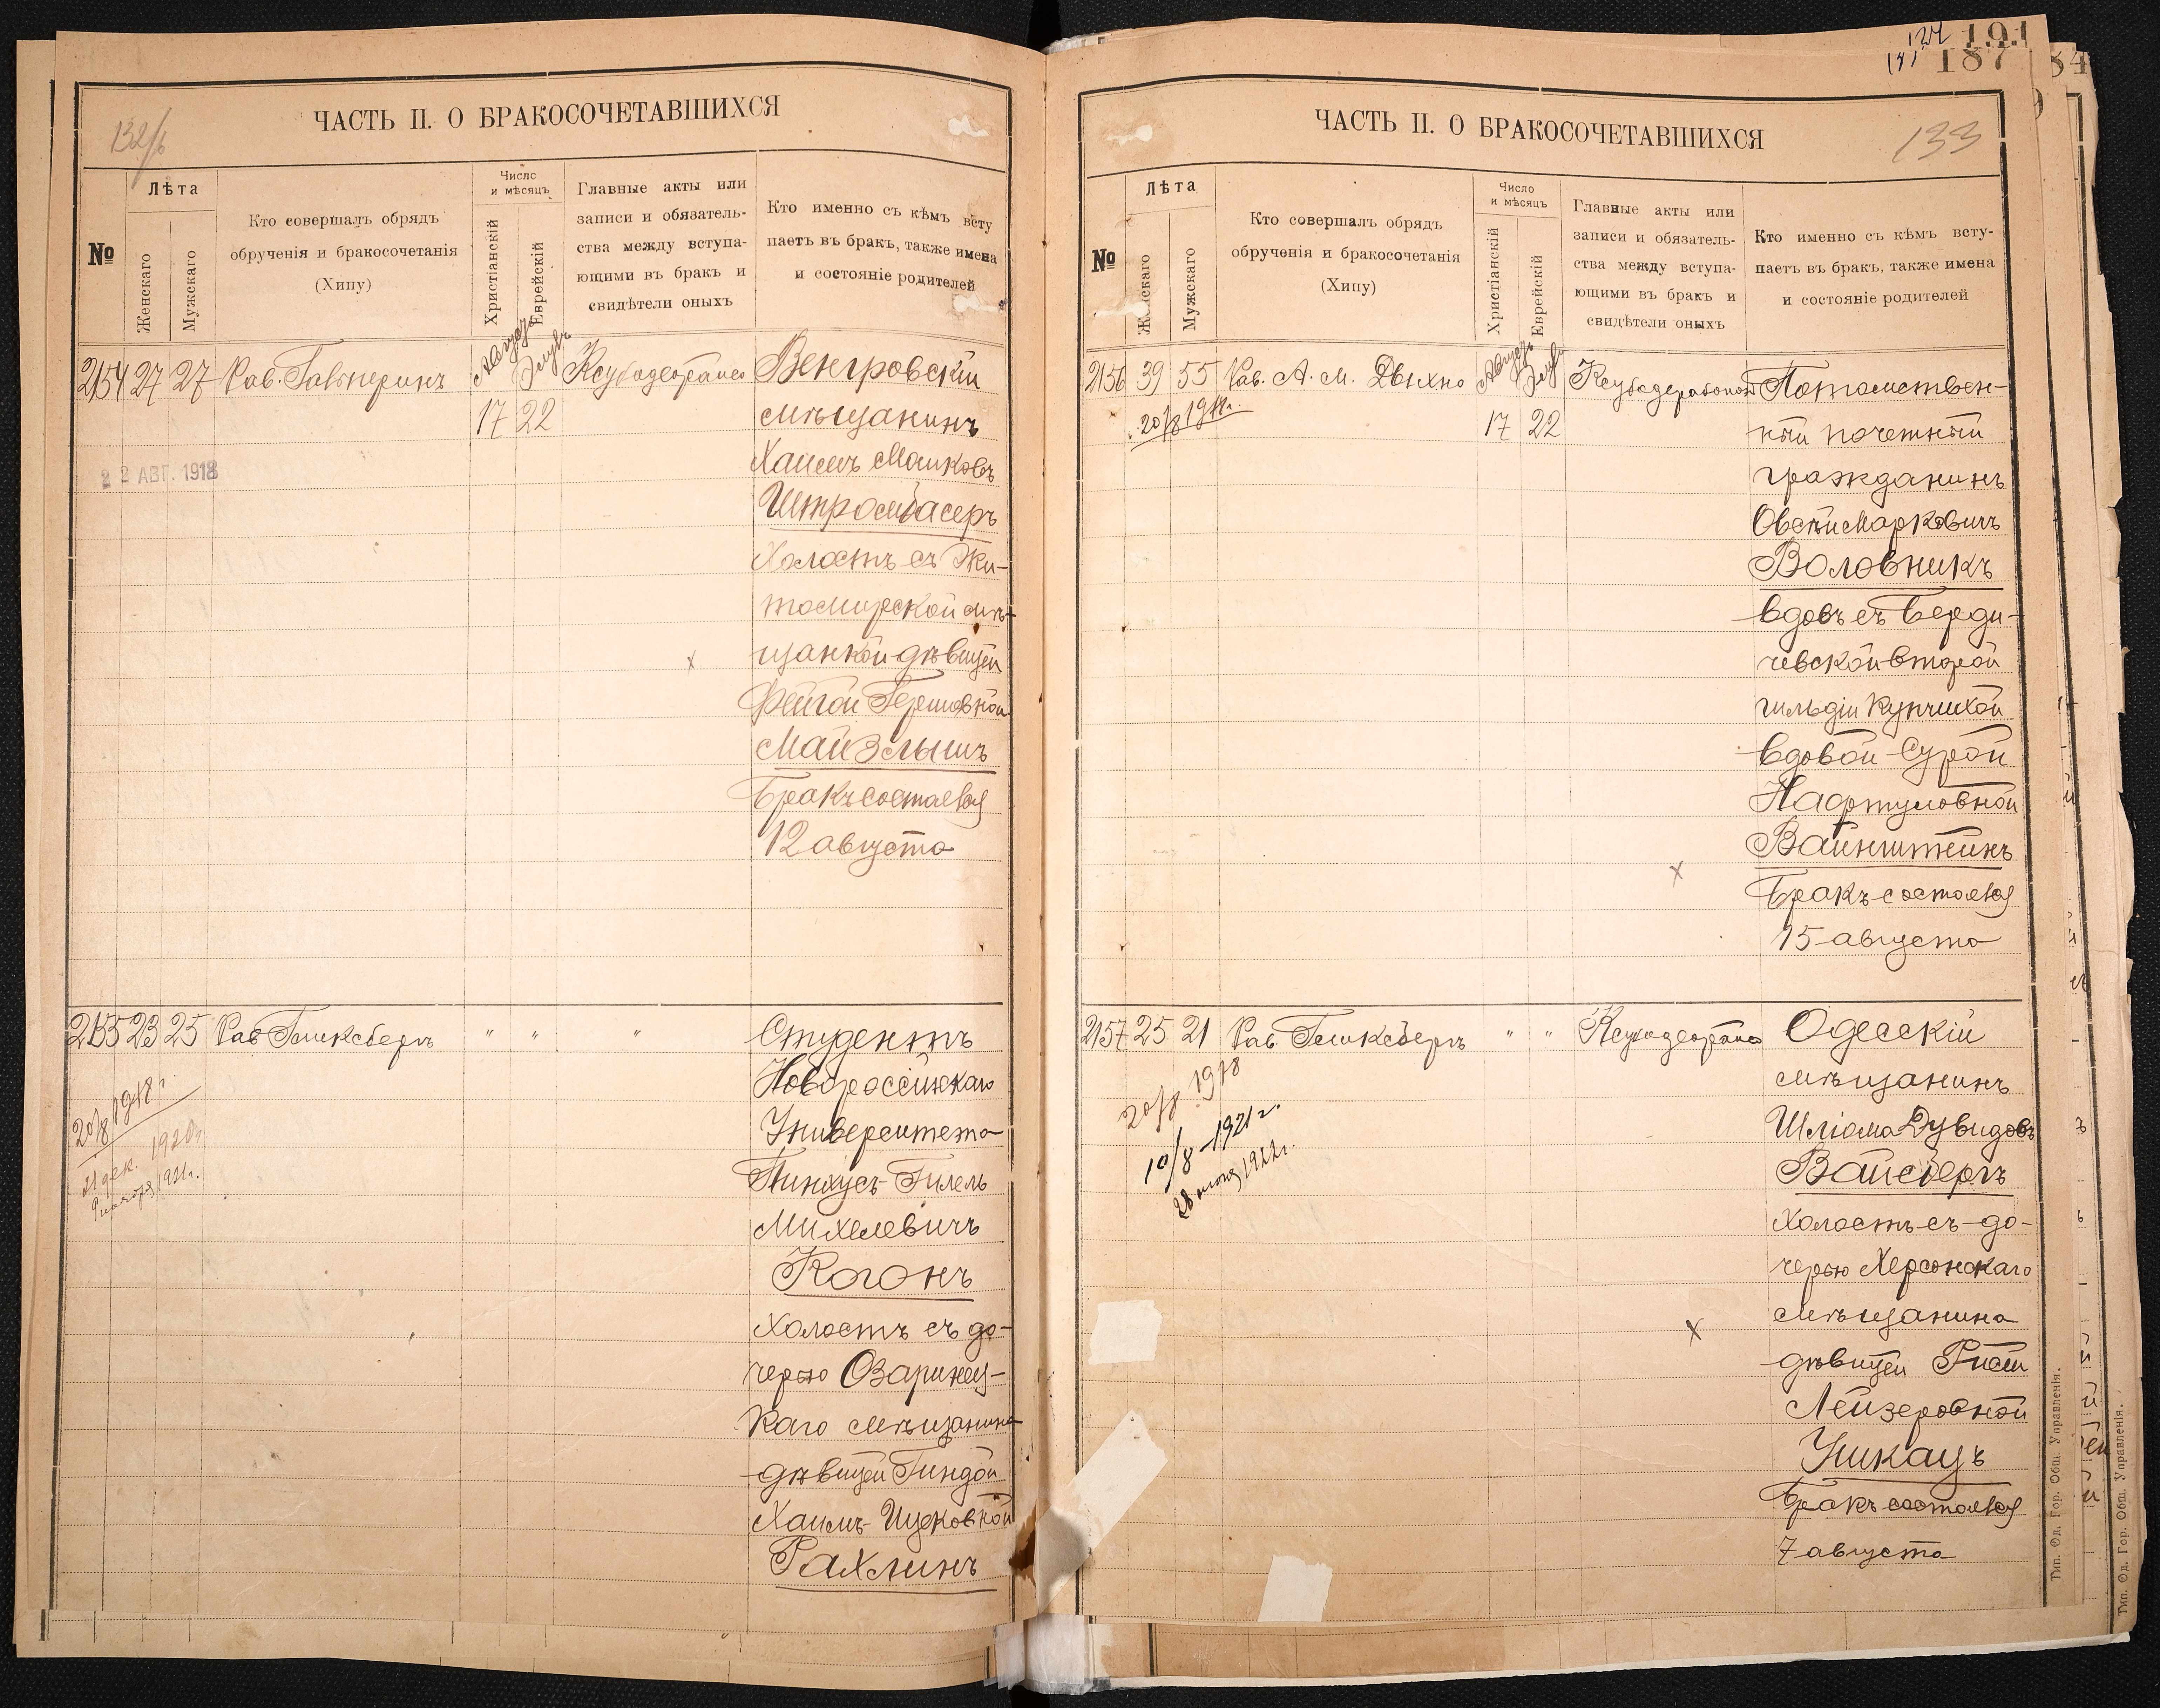 132/б
ЧАСТЬ II. О БРАКОСОЧЕТАВШИХСЯ
№
Лѣта
Женскаго
Мужскаго
Кто совершалъ обрядъ
обрученія и бракосочетанія
(Хипу)
Число
и мѣсяцъ
Христіанскій
Еврейскій
Главные акты или
записи и обязатель-
ства между вступа-
ющими въ бракъ и
свидѣтели оныхъ
Кто именно съ кѣмъ всту
паетъ въ бракъ, также имена
и состояніе родителей
2154 27 27 Рав. Гальперинъ Августъ Элулъ Венгровскій
17 22 мѣщанинъ
Хаимъ Машковъ
22 АВГ. 1918
Штромвасеръ
Холостъ съ Жи-
томирской мѣ-
щанкой дѣвицей
Фейгой Гершовной
Майзлышъ
Бракъ состоялся
12 августа
2155 23 25 Рав Гликсбергъ " " " Студентъ
Новороссійскаго
20/8 1918 г.
Университета
21 дек. 1920 г.
Пинхусъ-Гилель
1921 г.
Михелевичъ
Когонъ
Холостъ съ до-
черью Озаринец-
каго мѣщанина
дѣвицей Гиндой
Хаимъ-Ицковной
Рахлинъ
191
187
84
133
ЧАСТЬ II. О БРАКОСОЧЕТАВШИХСЯ
№
Лѣта
Женскаго
Мужскаго
Кто совершалъ обрядъ
обрученія и бракосочетанія
(Хипу)
Число
и мѣсяцъ
Христіанскій
Еврейскій
Главные акты или
записи и обязатель-
ства между вступа-
ющими въ бракъ и
свидѣтели оныхъ
Кто именно съ кѣмъ всту-
паетъ въ бракъ, также имена
и состояніе родителей
2156 39 55 Рав. А. М. Двихно Августъ Элулъ Потомствен-
20/8 1918 г. 17 22 ный почетный
гражданинъ
Овсѣй Марковичъ
Воловникъ
вдовъ съ Берди-
чевской второй
гильдіи купчихой
вдовой Сурой
Нафтуловной
Вайнштейнъ
Бракъ состоялся
15 августа
2157 25 21 Рав. Гликсбергъ " " Одесскій
20/8 1918
мѣщанинъ
10/8-1921 г.
Шліома Дувидовъ
28 1922 г.
Вайсбергъ
Холостъ съ до-
черью Херсонскаго
мѣщанина
дѣвицей Рисей
Лейзеровной
Ушкацъ
Бракъ состоялся
7 августа
Тип. Од. Гор. Общ. Управленія.
Тип. Од. Гор. Общ. Управленія.